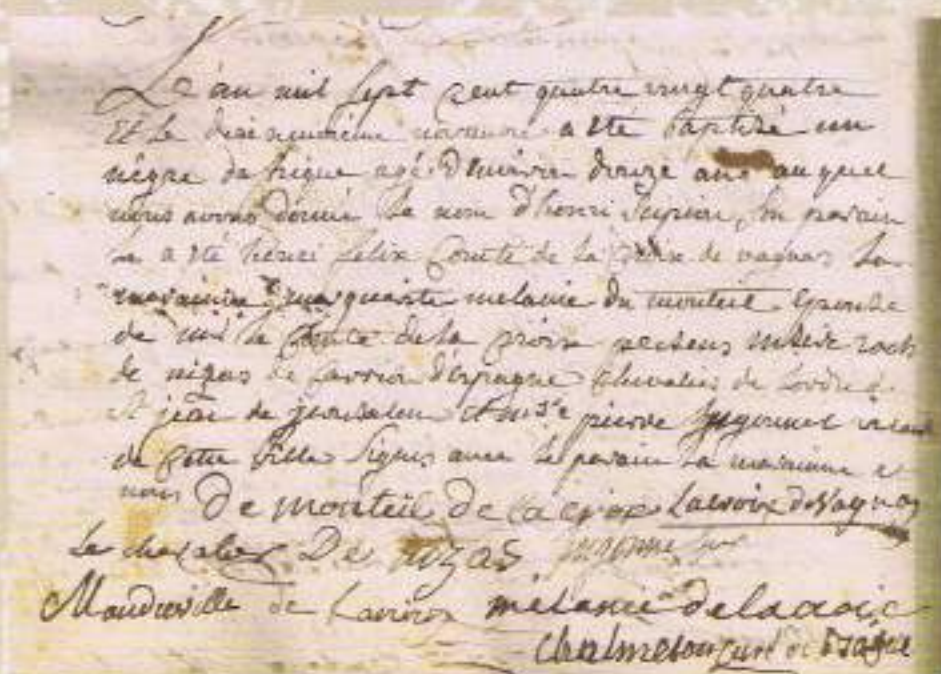 L'an mil sept cent quatre vingt quatre
et le dixneuvième novembre a été baptisé un
nègre dafrique agé denviron douze ans au quel
nous avons donné le nom d'henri Scipion, son parain
a été henri felix Comte de la Croix de vagnas la
maraine marguerite melanie du monteil Epouse
de mr le Comte de la Croix presens
de de Carrion d'espagne Chevalier de Lordre de
st jean de jerusalem et pierre
de cette ville signés avec le parain la maraine et
nous De monteil De la croix Lacroix de Vagnas
Le chevalier De nizas
de Lacroix mélanie de lacroix
curé de